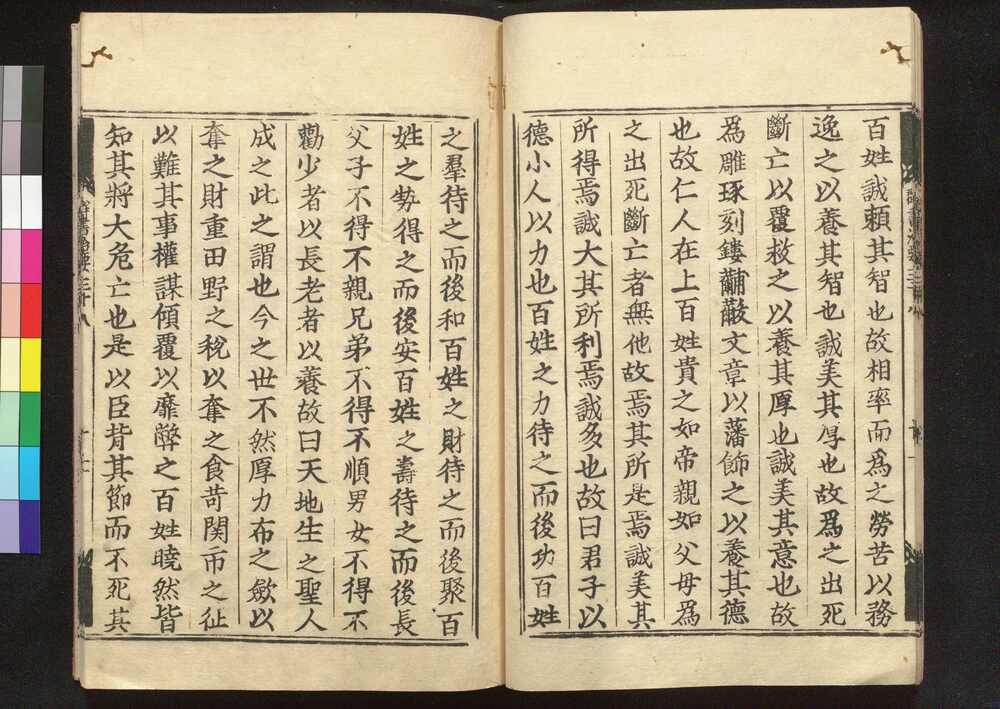 百姓誠頼其智也故相率而爲之勞苦以務
逸之以養其智也誠美其厚也故爲之出死
斷亡以覆救之以養其厚也誠美其意也故
爲雕琢刻鏤黼黻文章以藩飾之以養其德
也故仁人在上百姓貴之如帝親如父母爲
之出死斷亡者無他故焉其所是焉誠美其
所得焉誠大其所利焉誠多也故曰君子以
德小人以力也百姓之力待之而後功百姓
之羣待之而後和百姓之財待之而後聚百
姓之勢得之而後安百姓之壽待之而後長
父子不得不親兄弟不得不順男女不得不
勸少者以長老者以養故曰天地生之聖人
成之此之謂也今之世不然厚力布之斂以
奪之財重田野之稅以奪之食苛関市之征
以難其事權謀傾覆以靡弊之百姓曉然皆
知其將大危亡也是以臣背其節而不死其
群書治要三十八